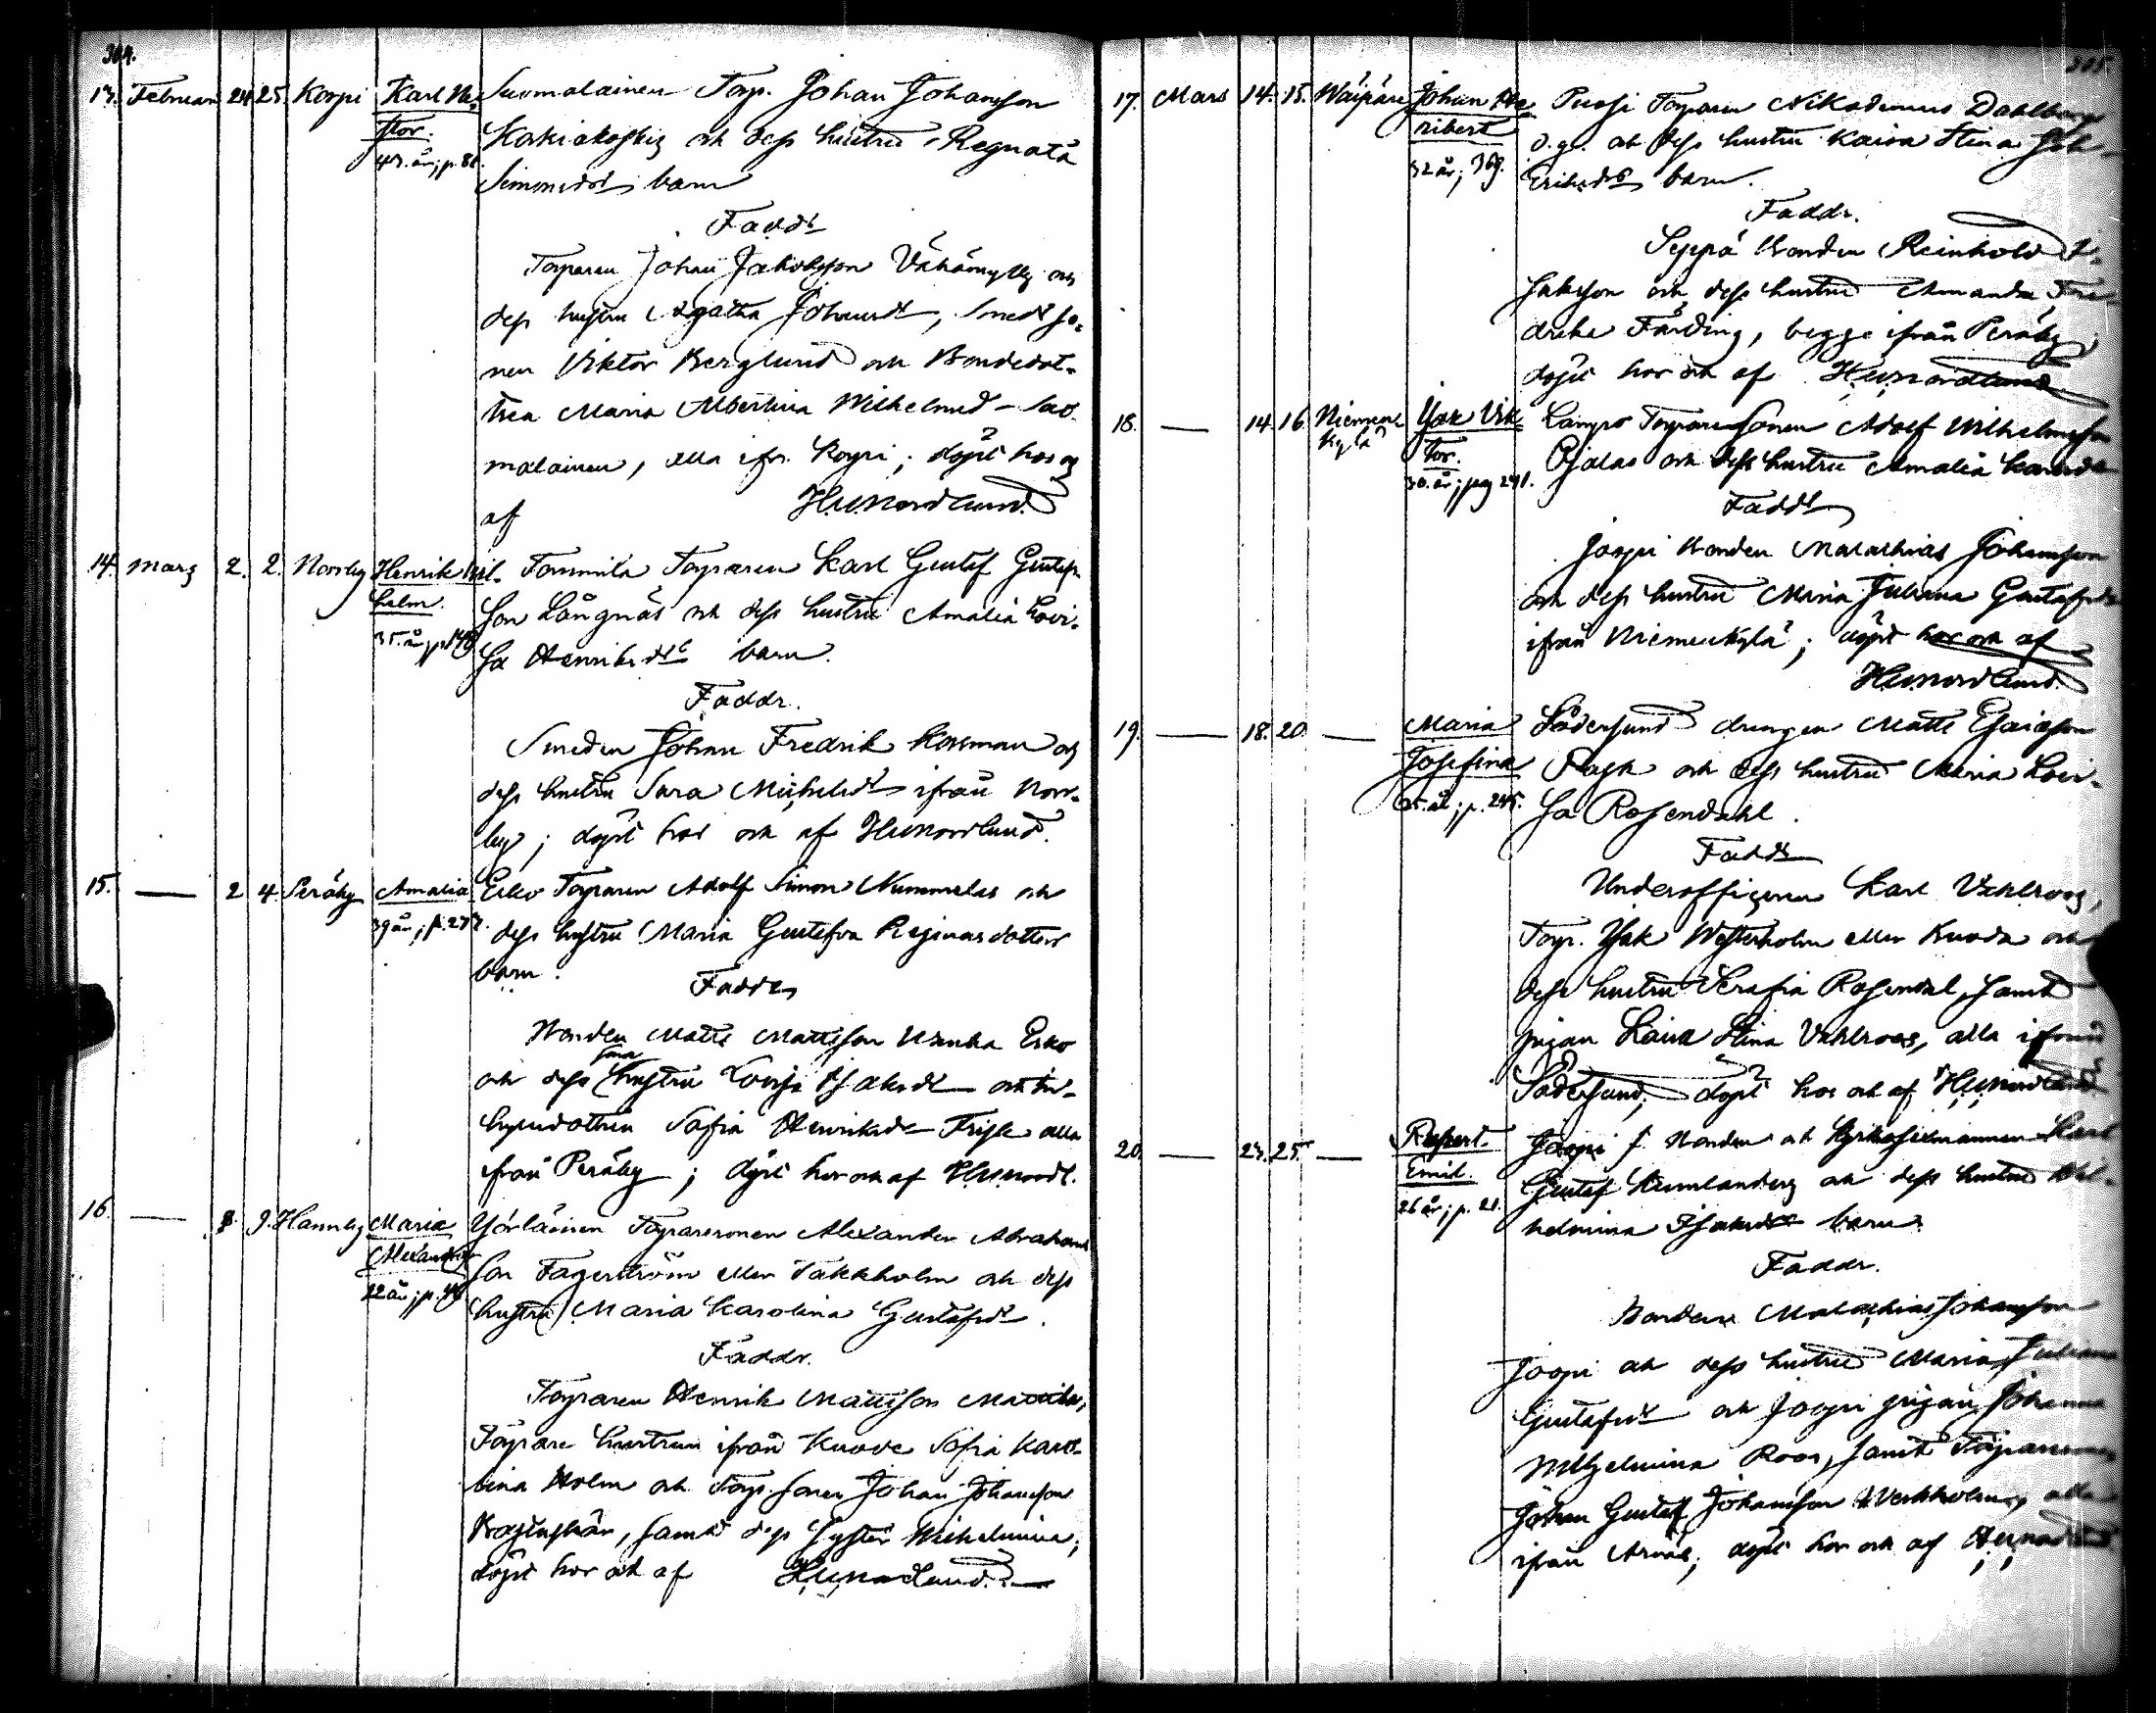 304.
13. Februari 24 25. Korpi Karl Vik- Suomalainen Torp. Johan Johansson
tor. Kakiakoski och dess hustru Regnata
43. år; p. 81. Simonsdrs barn
Faddr
Torparen Johan Jakobsson Vähämylly och
dess hustru Agatha Johansdr, Smedso-
nen Viktor Berglund och Bondedot-
tren Maria Albertina Wilhelmsd- Suo-
malainen, alla ifr. Korpi; döpt hos och
af HUNordlund
14. Mars 2. 2. Norrby Henrik Wil- Tommila Torparen Karl Gustaf Gustafs-
helm. son Långnäs och dess hustru Amalia Lovi-
35. år, p. 149 sa Henriksdrs barn.
Faddr.
Smeden Johan Fredrik Korsman och
dess hustru Sara Michelsdr ifrån Norr-
by; döpt hos och af HUNordlund.
15. — 2 4. Peräby Amalia Erko Torparen Adolf Simon Nummelas och
39 år; p. 277. dess hustru Maria Gustafva Reginasdotter
barn.
Faddr
Bonden Matts Mattsson Wanha Erko
och dess hustru Lovisa Isaksdr och In-
hysesdottren Sofia Henriksdr Frisk alla
ifrån Peräby; döpt hos och af HUNordl.
16. — 8. 9. Hannby Maria Yörläinen Torparesonen Alexander Abrahams
Alexandra son Fagerström eller Takkholm och dess
22 år; p. hustru Maria Karolina Gustafsdr.
Faddr.
Torparen Henrik Mattsson Mattila,
Torpare hustrun ifrån Kuove Sofia Karo-
lina Holm och Torp. sonen Johan Johansson
samt dess Syster Wilhelmina;
döpt hos och af HUNordlund.
305.
17. Mars 14. 15. Wäipäre Johan He- Puosi Torparen Nikodemus Dahlberg
ribert d.y. och dess hustru Kaisa Stina Joh-
32 år; 369. Eriksdrs barn.
Faddr.
Seppä Bonden Reinhold I-
saksson och dess hustru Amanda Fre-
drika Färding, begge ifrån Peräby;
döpt hos och af HUNordlund
18. — 14. 16. Niemen Isak Vik- Lampo Torparesonen Adolf Wilhelmsson
kylä tor. Ojalas och dess hustru Amalia Karlsdr
30. år; pag 291. Faddr
Joopi Bonden Malachias Johansson
och dess hustru Maria Juliana Gustafsdr
ifrån Niemenkylä; döpt hos och af
HUNordlund.
19. — 18. 20. — Maria Södersund drengen Matts Esaiasson
Josefina Rask och dess hustru Maria Lovi-
25. år; p. 245. sa Rosendahl.
Faddr
Underofficeren Karl Vahlroos,
Torp. Isak Westerholm eller Kuoda och
dess hustru Serafia Rosendal, samt
pigan Kaisa Stina Vahlroos, alla ifrån
Södersund; döpt hos och af HUNordlund
20. — 23. 25. — Rupert Joopi f. Bonden och Kyrkosexmannen Karl
Emil. Gustaf Kumlander och dess hustru Wil-
26 år; p. 21. helmina Isaksdr barn
Faddr.
Bonden Malachias Johansson
Joopi och dess hustru Maria Juliana
Gustafsdr och Joopi pigan Johanna
Wilhelmina Roos, samt Torparesonen
Johan Gustaf Johansson Werkholm, alla
ifrån Arvas; döpt hos och af HUNordlund